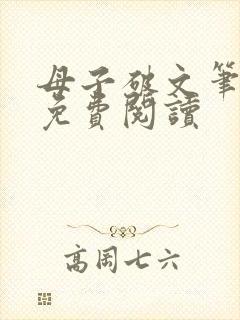 母子破文筆
免費閱讀
高周七六